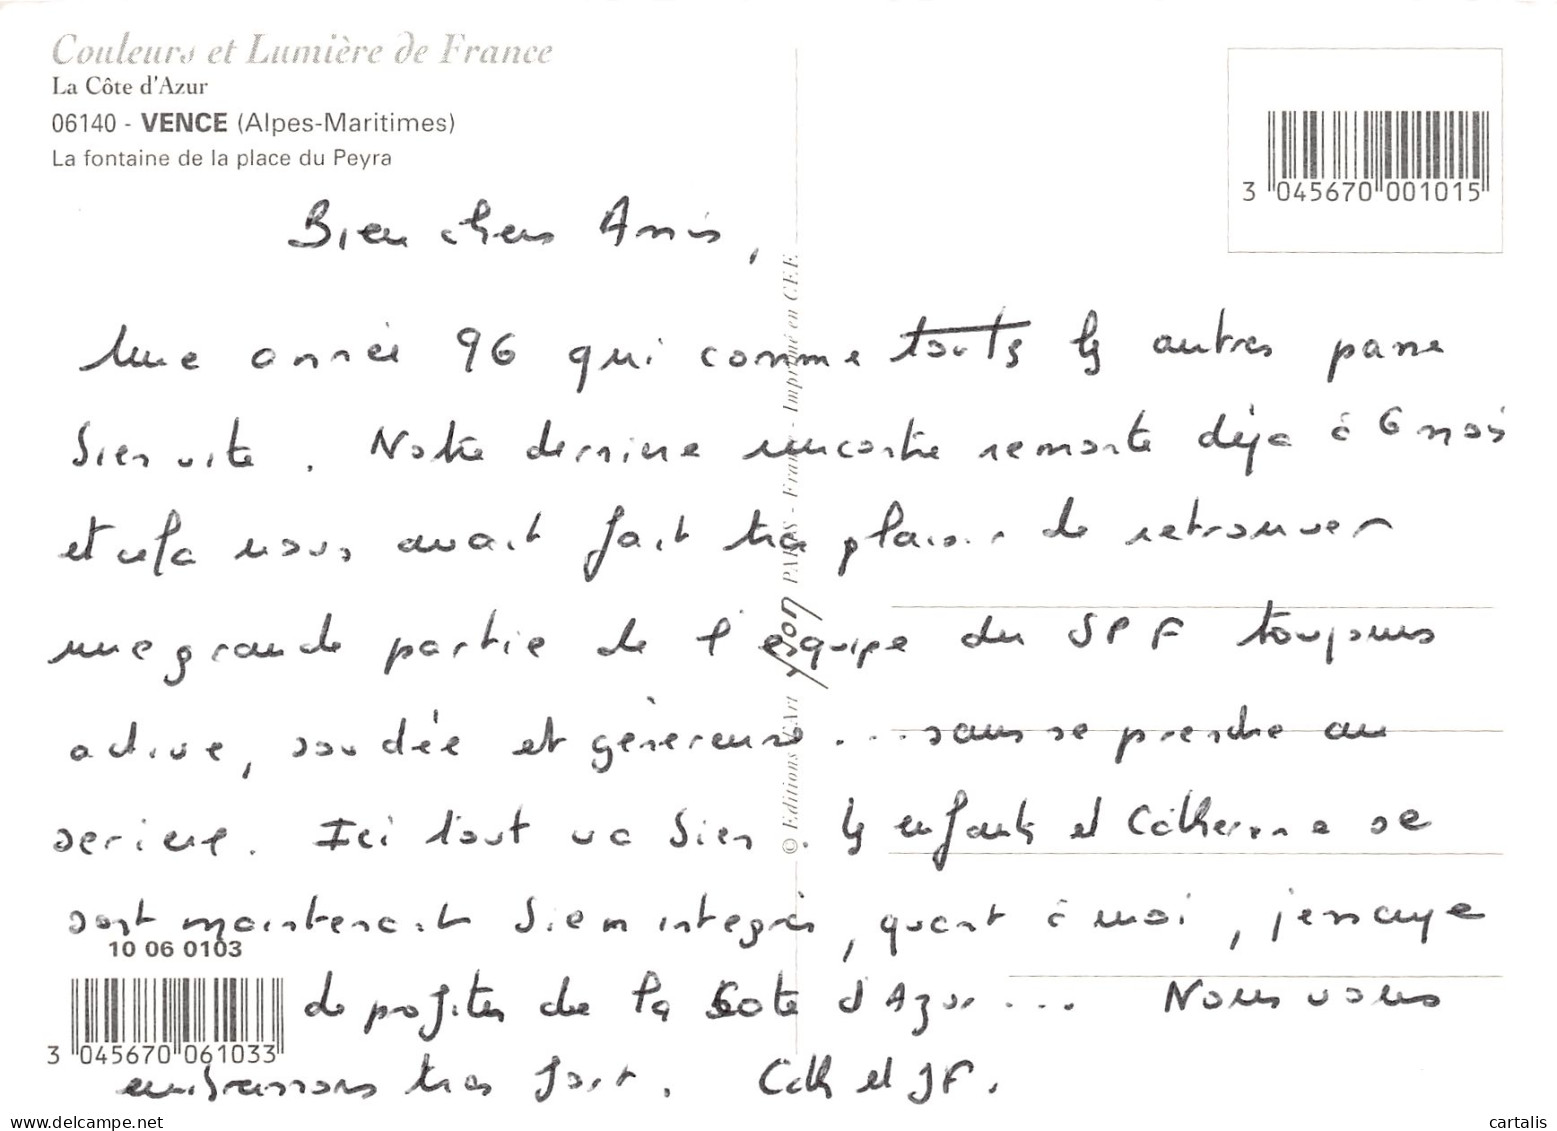 Couleurs et Lumière de France
La Côte d'Azur
06140 - VENCE (Alpes-Maritimes)
La fontaine de la place du Peyra
3 045670 001015
Bien chers Amis,
Une année 96 qui comme touts les autres passe
bien vite. Notre dernière rencontre remonte déjà à 6 mois
et cela nous avait fait très plaisir de retrouver
une grande partie de l'équipe du SPF toujours
active, soudée et génèreuse... sans se prendre au
serieux. Ici tout va bien. les enfants et Catherine se
sont maintenant bien intégrés, quant à moi, j'essaye
de profiter de la Cote d'Azur... Nous vous
embrassons très fort. Cath et JF.
© Editions d'Art yvon PARIS - France - Imprimé en C.E.E.
10 06 0103
3 045670 061033
cartalis